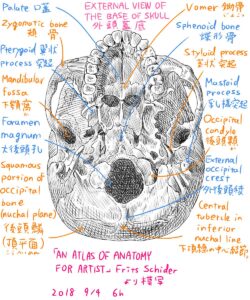 EXTERNAL VIEW OF
THE BASE OF SKULL
外頭蓋底
Palate 口蓋
Zygomatic bone
頬骨
Pterygoid 翼状
process 突起
Mandibular
fossa
下顎窩
Foramen
magnum
大後頭孔
Squamous
portion of
occipital
bone
(nuchal plane)
後頭鱗
(項平面)
Vomer 鋤骨
Sphenoid bone
蝶形骨
Styloid process
茎状突起
Mastoid
process
乳様突起
Occipital
condyle
後頭顆
External
occipital
crest
外後頭稜
Central
tubercle in
inferior
nuchal line
下項線の中心結節
「AN ATLAS OF ANATOMY
FOR ARTIST」Frits Schider
より模写
2018 9/4 6h